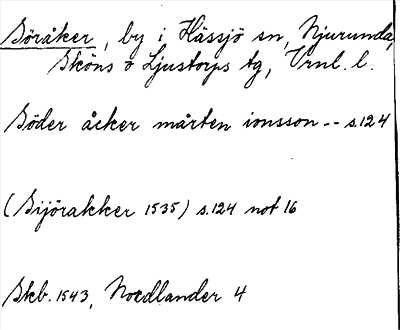 Söråker, by i Hässjö sn, Njurunda,
Sköns o Ljustorps tg, Vrnl. l.
Söder åcker mårten ionsson -- s.124
(Sijörakker 1535) s.124 not 16
Skb. 1543, Nordlander 4